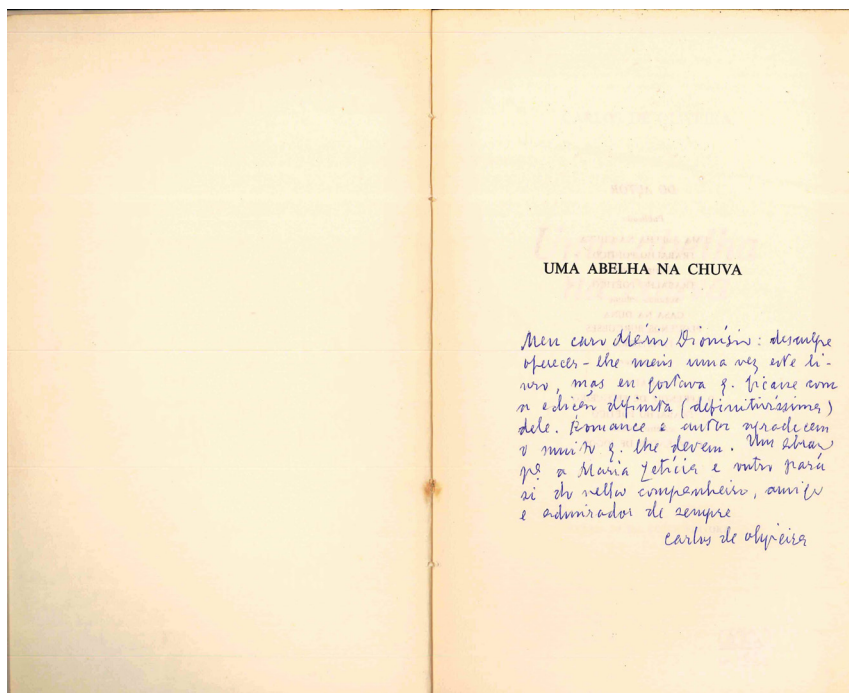 UMA ABELHA NA CHUVA
Meu caro Mário Dionísio: desculpe
oferecer-lhe mais uma vez este li-
vro, mas eu gostava q. ficasse com
a edição definita (definitivíssima)
dele. Romance e autor agradecem
o muito q. lhe devem. Um abraço
pª a Maria Letícia e outro para
si do velho companheiro, amigo
e admirador de sempre
Carlos de Oliveira